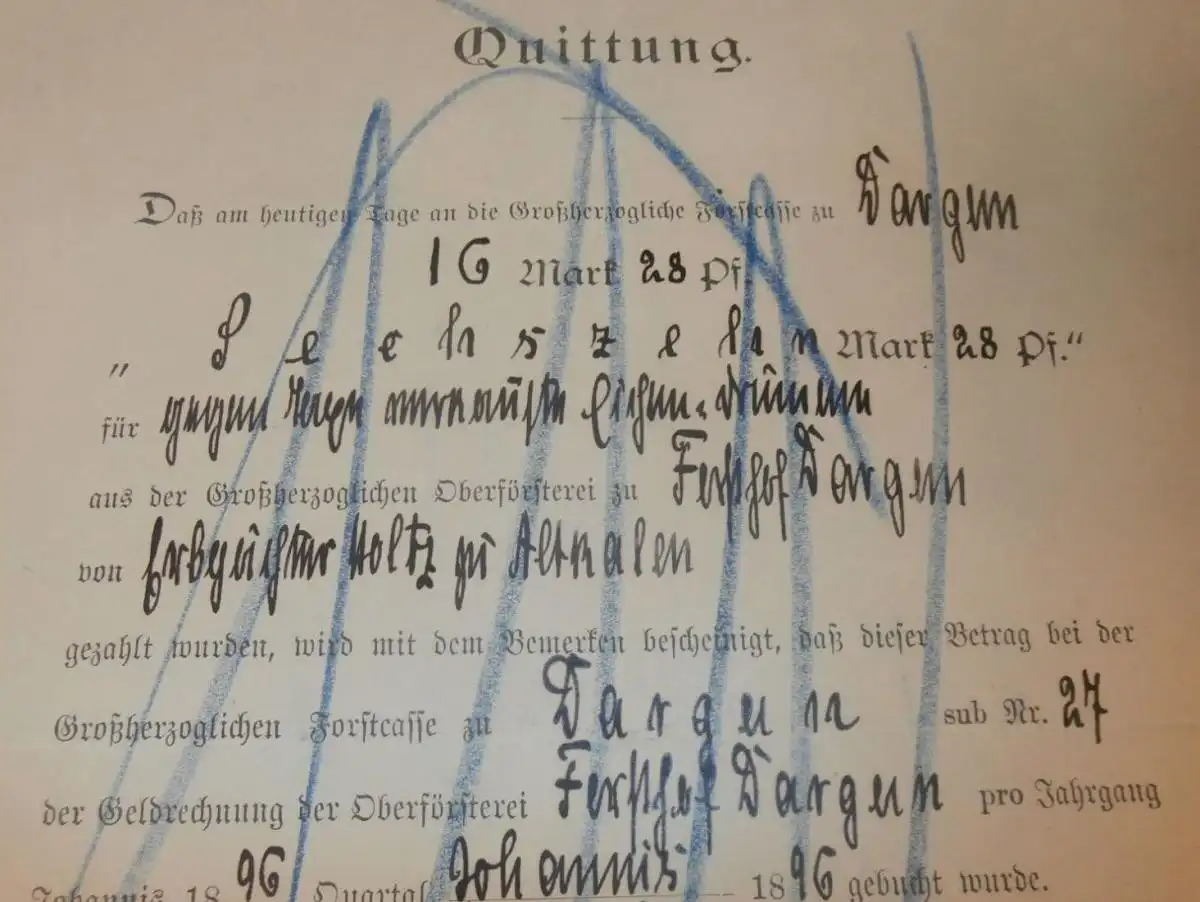 Quittung.
Daß am heutigen Tage an die Großherzogliche Forstcasse zu Dargun
16 Mark 28 Pf.
„ Sechszehn Mark 28 Pf.“
für gegen Eichen
aus der Großherzoglichen Oberförsterei zu Forsthof Dargun
von Erbpächter Holtz zu Altkalen
gezahlt wurden, wird mit dem Bemerken bescheinigt, daß dieser Betrag bei der
Großherzoglichen Forstcasse zu Dargun sub Nr. 27
der Geldrechnung der Oberförsterei Forsthof Dargun pro Jahrgang
Johannis 1896 Quartal Johannis 1896 gebucht wurde.